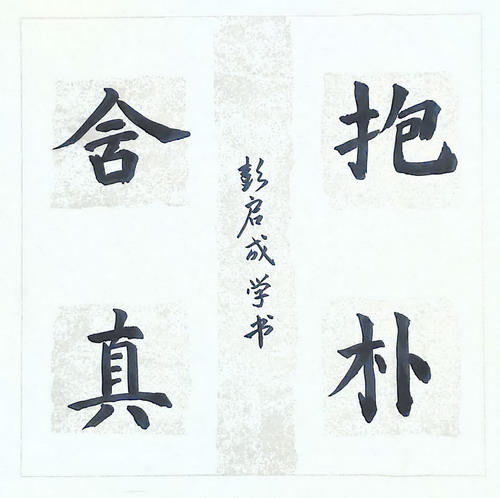 抱朴
含真
彭启成学书